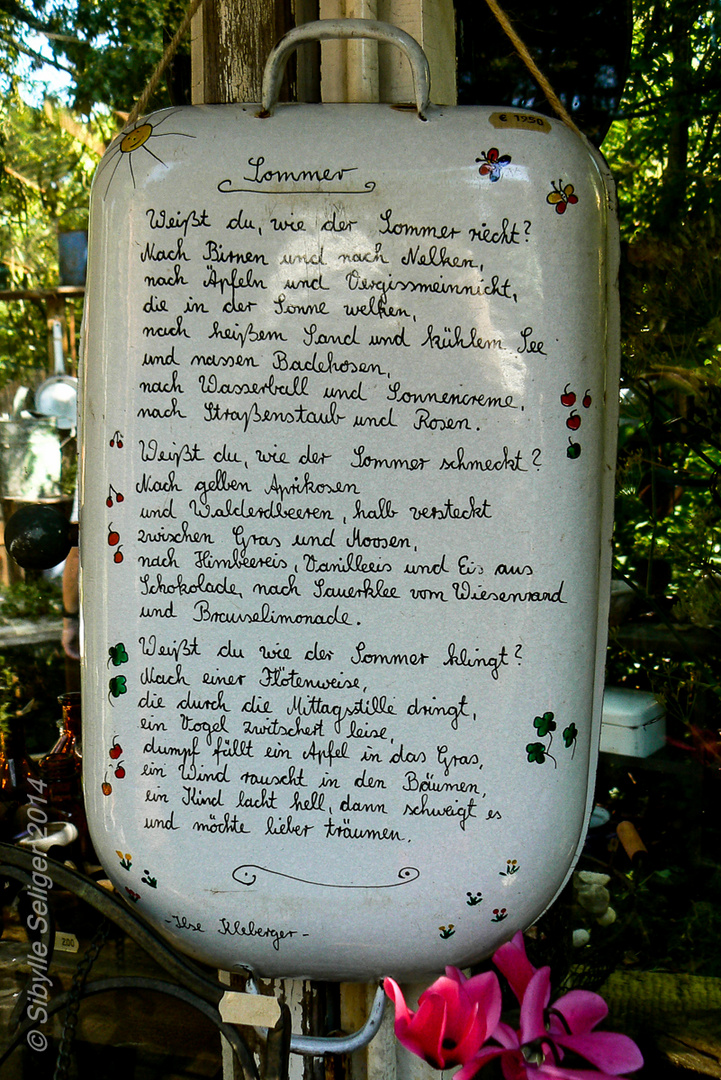 € 1950
Sommer
Weißt du, wie der Sommer riecht?
Nach Birnen und nach Nelken,
nach Äpfeln und Vergissmeinnicht,
die in der Sonne welken,
nach heißem Sand und kühlem See
und nassen Badehosen,
nach Wasserball und Sonnencreme,
nach Straßenstaub und Rosen.
Weißt du, wie der Sommer schmeckt?
Nach gelben Aprikosen
und Walderdbeeren, halb versteckt
zwischen Gras und Moosen,
nach Himbeereis, Vanilleeis und Eis aus
Schokolade, nach Sauerklee vom Wiesenrand
und Brauselimonade.
Weißt du wie der Sommer klingt?
Nach einer Flötenweise,
die durch die Mittagsstille dringt,
ein Vogel zwitschert leise,
dumpf fällt ein Apfel in das Gras,
ein Wind rauscht in den Bäumen,
ein Kind lacht hell, dann schweigt es
und möchte lieber träumen.
- Ilse Kleberger -
200
© Sibylle Seliger 2014